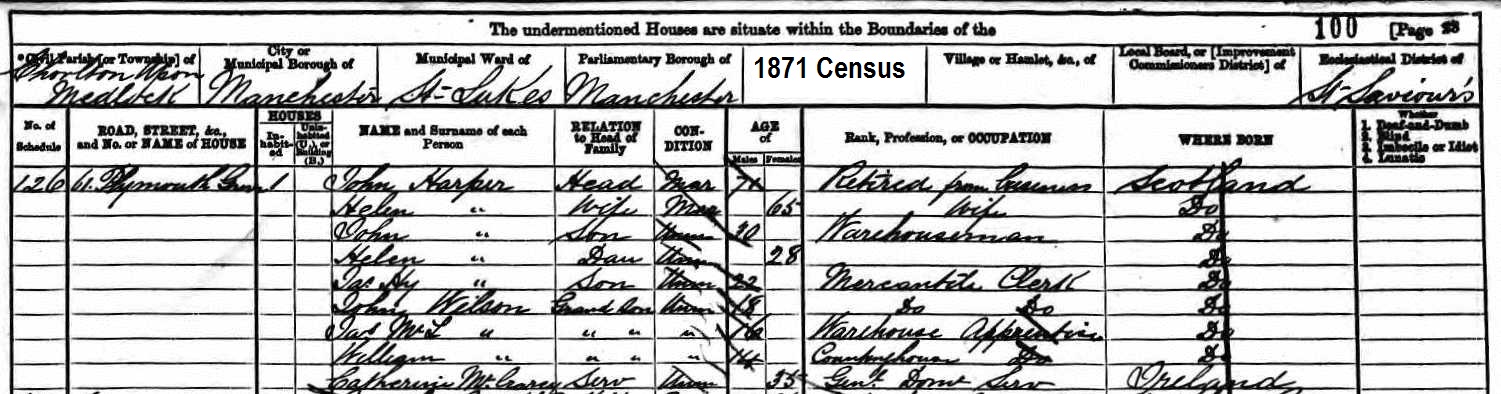 The undermentioned Houses are situate within the Boundaries of the 100 [Page 23
Civil Parish [or Township] of City or Municipal Borough of Municipal Ward of Parliamentary Borough of 1871 Census Village or Hamlet, &c., of Local Board, or [Improvement Commissioners District] of Ecclesiastical District of
Chorlton Upon Medlock Manchester St Lukes Manchester St Saviour's
No. of Schedule ROAD, STREET, &c., and No. or NAME of HOUSE HOUSES In-habit-ed Unin-habited (U.), or Building (B.) NAME and Surname of each Person RELATION to Head of Family CON-DITION AGE of Males Females Rank, Profession, or OCCUPATION WHERE BORN Whether 1. Deaf-and-Dumb 2. Blind 3. Imbecile or Idiot 4. Lunatic
126 61 Plymouth Grove 1 John Harper Head Mar 71 Retired from business Scotland
Helen " Wife Mar 65 Wife Do
John " Son Unm 30 Warehouseman Do
Helen " Dau Unm 28 Do
Jas Hy " Son Unm 22 Mercantile Clerk Do
John Wilson Grand Son Unm 18 Do Do Do
Jas McL " " " " 16 Warehouse Apprentice Do
William " " " " 14 Countinghouse Do Do
Catherine Serv Unm 35 Genl Domc Serv Ireland